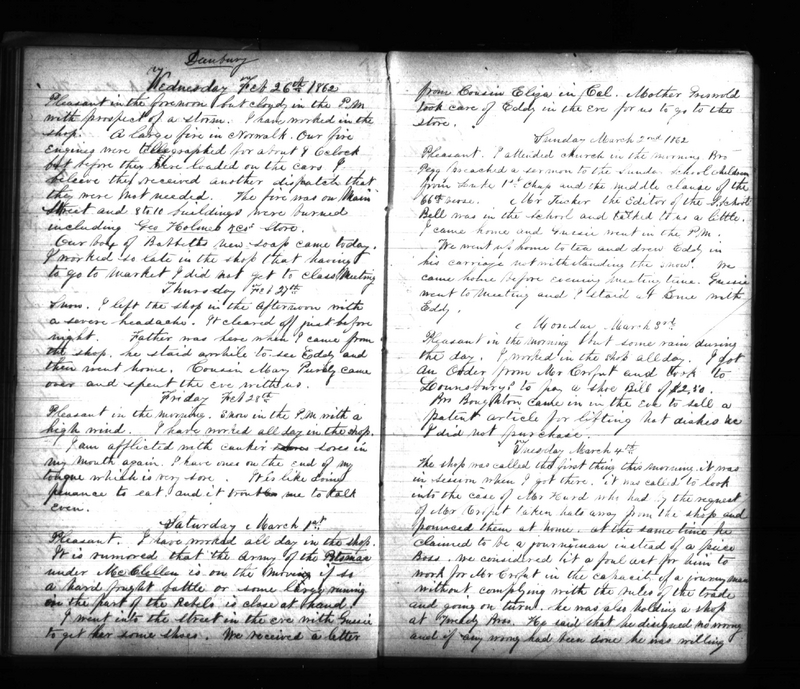 Danbury
Wednesday Feb 26th 1862
Pleasant in the forenoon but cloudy in the P.M.
with prospect of a storm. I have worked in the
shop. A large fire in Norwalk. Our fire
engines were Telegraphed for about 4 Oclock
but before they were loaded on the cars I
believe they received another dispatch that
they were not needed. The fire was on Main
Street and 8 to 10 buildings were burned
including Geo Holmes & Cos Store.
Our box of Babbetts new soap came today.
I worked so late in the shop that having
to go to market I did not get to class Meeting
Thursday Feb 27th
Snow. I left the shop in the afternoon with
a severe headache. It cleared off just before
night. Father was here when I came from
the shop, he staid awhile to see Eddy and
then went home. Cousin Mary Purdy came
over and spent the eve with us.
Friday Feb 28th
Pleasant in the morning. Snow in the P.M. with a
high wind. I have worked all day in the shop.
I am afflicted with canker sores in
my mouth again. I have ones on the end of my
tongue which is very sore. It is like doing
penance to eat, and it troubles me to talk
even.
Saturday March 1st
Pleasant. I have worked all day in the shop.
It is rumored that the Army of the Potomac
under McClellen is on the move if so
a hard fought battle or some large runing
on the part of the Rebels is close at hand.
I went into the street in the eve with Gussie
to get her some shoes. We received a letter
from Cousin Eliza in Cal. Mother Griswold
took care of Eddy in the eve for us to go to the
store.
Sunday March 2nd 1862
Pleasant. I attended church in the morning Bro
Pegg preached a sermon to the Sunday school children
from Luke 1st Chap and the middle clause of the
66th verse. Mr Tucker the Editor of the S. School
Bell was in the School and talked to us a little.
I came home and Gussie went in the P.M.
We went up home to tea and drew Eddy in
his carriage notwithstanding the snow. We
came home before evening meeting time. Gussie
went to Meeting and I staid at home with
Eddy.
Monday March 3rd
Pleasant in the morning but some rain during
the day. I worked in the shop all day. I got
an Order from Mr Crofut and took to
Lounsburys to pay a shoe Bill of $2,50.
Bro Boughton came in in the eve to sell a
patent article for lifting hot dishes &c
I did not purchase.
Tuesday March 4th
The shop was called the first thing this morning. it was
in session when I got there. it was called to look
into the case of Mr Hurd who had by the request
of Mr Crofut taken hats away from the shop and
pounced them at home. at the same time he
claimed to be a journeyman instead of a piece
Boss. we considered it a foul act for him to
work for Mr Crofut in the capacity of a journeyman
without complying with the rules of the trade
and going on turn. he was also holding a shop
at Tweedy Bros. He said that he designed no wrong
and if any wrong had been done he was willing